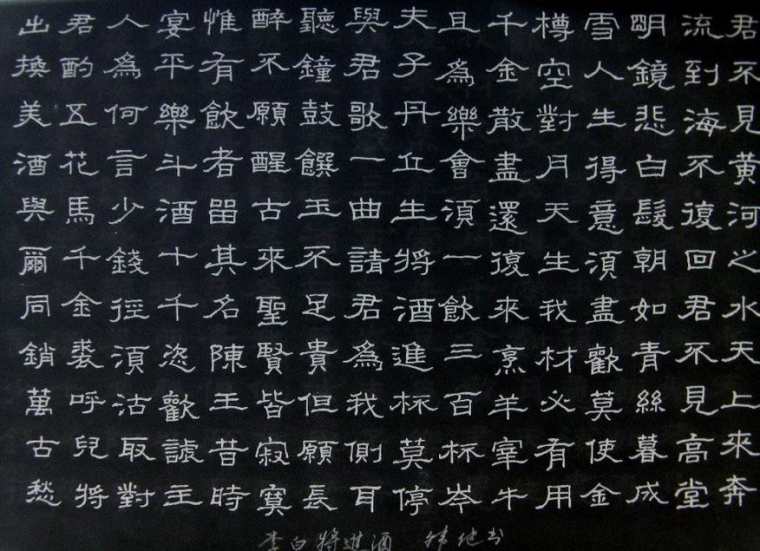 君不見黄河之水天上來奔
流到海不復回君不見高堂
明鏡悲白髮朝如青絲暮成
雪人生得意須盡歡莫使金
樽空對月天生我材必有用
千金散盡還復來烹羊宰牛
且爲樂會須一飲三百杯岑
夫子丹丘生將酒進杯莫停
與君歌一曲請君爲我側耳
聽鐘鼓饌玉不足貴但願長
醉不願醒古來聖賢皆寂寞
惟有飲者留其名陳王昔時
宴平樂斗酒十千恣歡謔主
人爲何言少錢徑須沽取對
君酌五花馬千金裘呼兒將
出換美酒與爾同銷萬古愁
李白將進酒 书